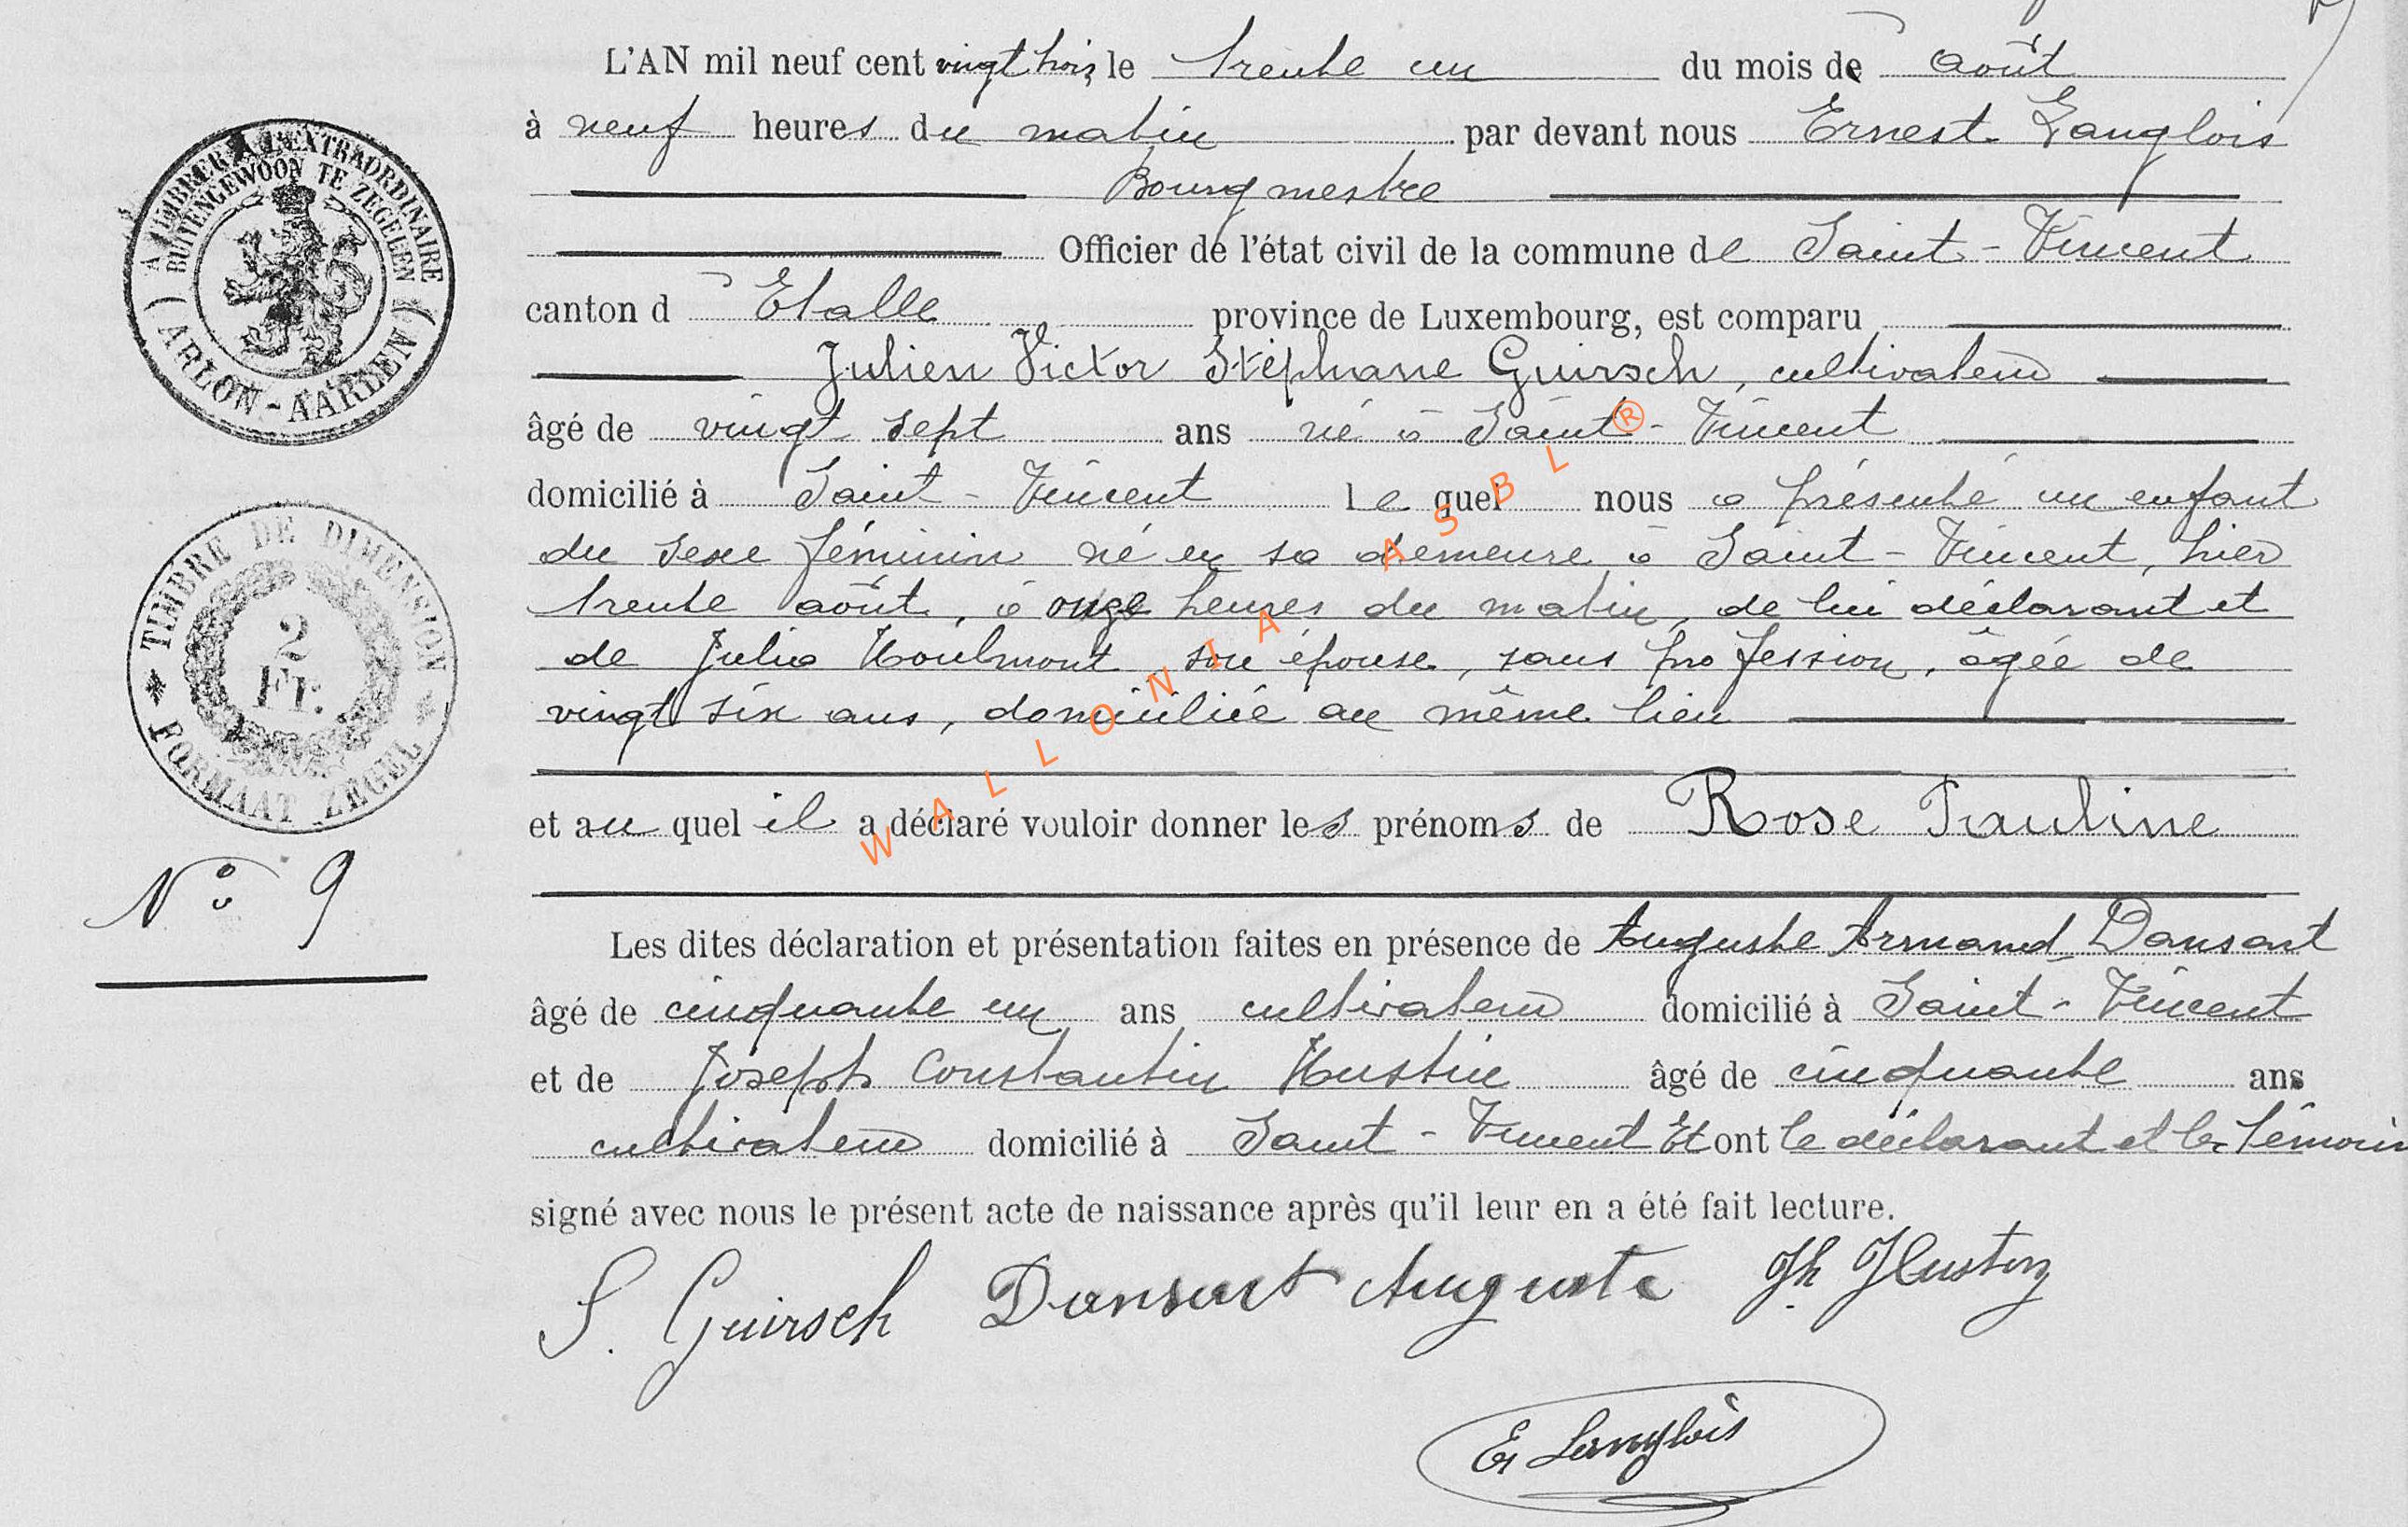 L'AN mil neuf cent vingt trois le trente un du mois de août
à neuf heures du matin par devant nous Ernest Langlois
Bourgmestre
Officier de l'état civil de la commune de Saint-Vincent
canton d' Etalle province de Luxembourg, est comparu
Julien Victor Stéphane Guirsch, cultivateur
âgé de vingt sept ans né à Saint-Vincent
domicilié à Saint-Vincent lequel nous a présenté un enfant
du sexe féminin né en sa demeure à Saint-Vincent, hier
trente août, à onze heures du matin, de lui déclarant et
de Julia Houlmont son épouse, sans profession, âgée de
vingt six ans, domiciliée au même lieu
et auquel il a déclaré vouloir donner les prénoms de Rose Pauline
Les dites déclaration et présentation faites en présence de Auguste Armand Dansart
âgé de cinquante un ans cultivateur domicilié à Saint-Vincent
et de Joseph Constantin Hustin âgé de cinquante ans
cultivateur domicilié à Saint-Vincent Et ont le déclarant et les témoins
signé avec nous le présent acte de naissance après qu'il leur en a été fait lecture.
S. Guirsch Dansart Auguste Jh Hustin
E Langlois
A TIMBRER A L'EXTRAORDINAIRE
BUITENGEWOON TE ZEGELEN
ARLON-AARLEN
TIMBRE DE DIMENSION
2
Fr.
FORMAAT ZEGEL
N° 9
WALLONIA ASBL ®